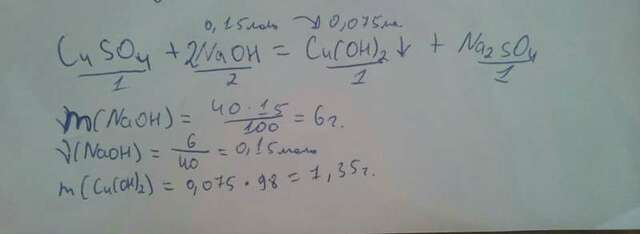 0,15моль → 0,075мо
CuSO₄ + 2NaOH = Cu(OH)₂ ↓ + Na₂SO₄
1 2 1 1
m(NaOH) = 40·15/100 = 6г.
ν(NaOH) = 6/40 = 0,15моль
m(Cu(OH)₂) = 0,075·98 = 1,35г.